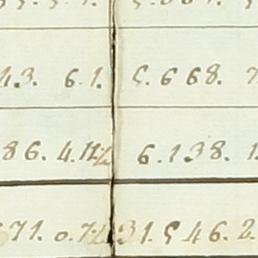 43. 6. 1. 5. 668. 7
86. 4. 11½ 6. 138. 1.
71. 0. 7½ 31. 546. 2.